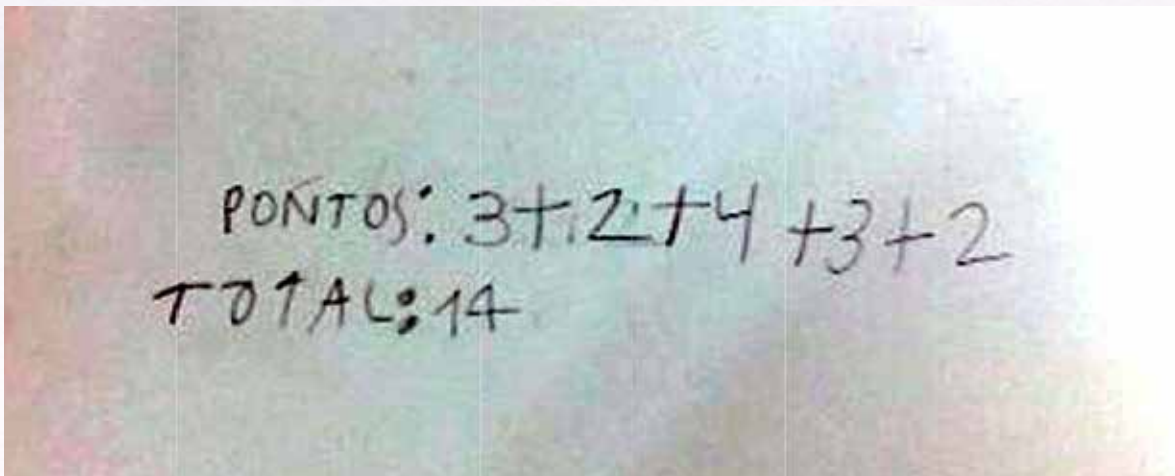 PONTOS: 3+2+4+3+2
TOTAL: 14